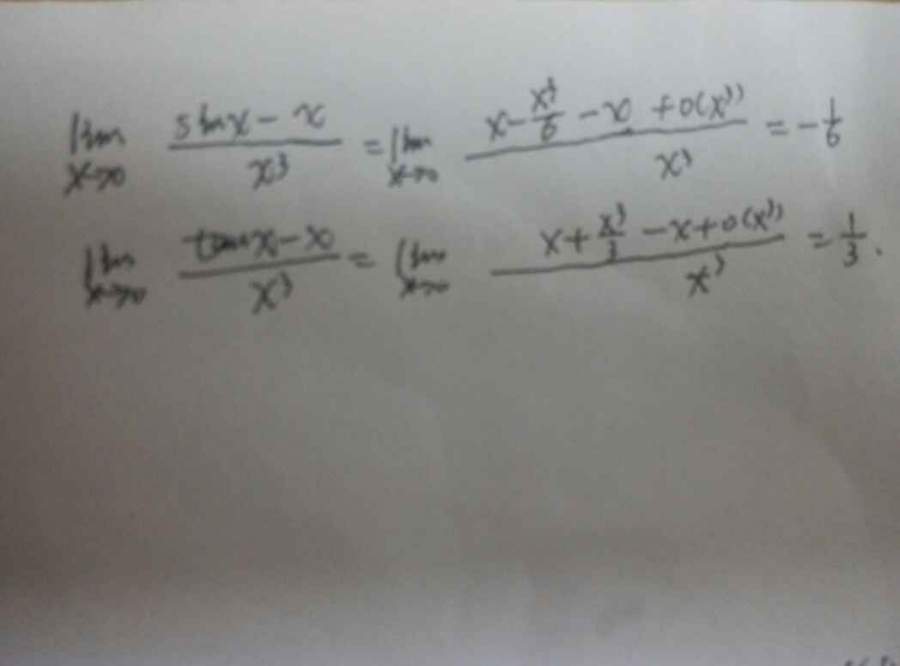 lim x→0 (sinx - x)/x³ = lim x→0 (x - x³/6 - x + o(x³))/x³ = -1/6
lim x→0 (tanx - x)/x³ = lim x→0 (x + x³/3 - x + o(x³))/x³ = 1/3.